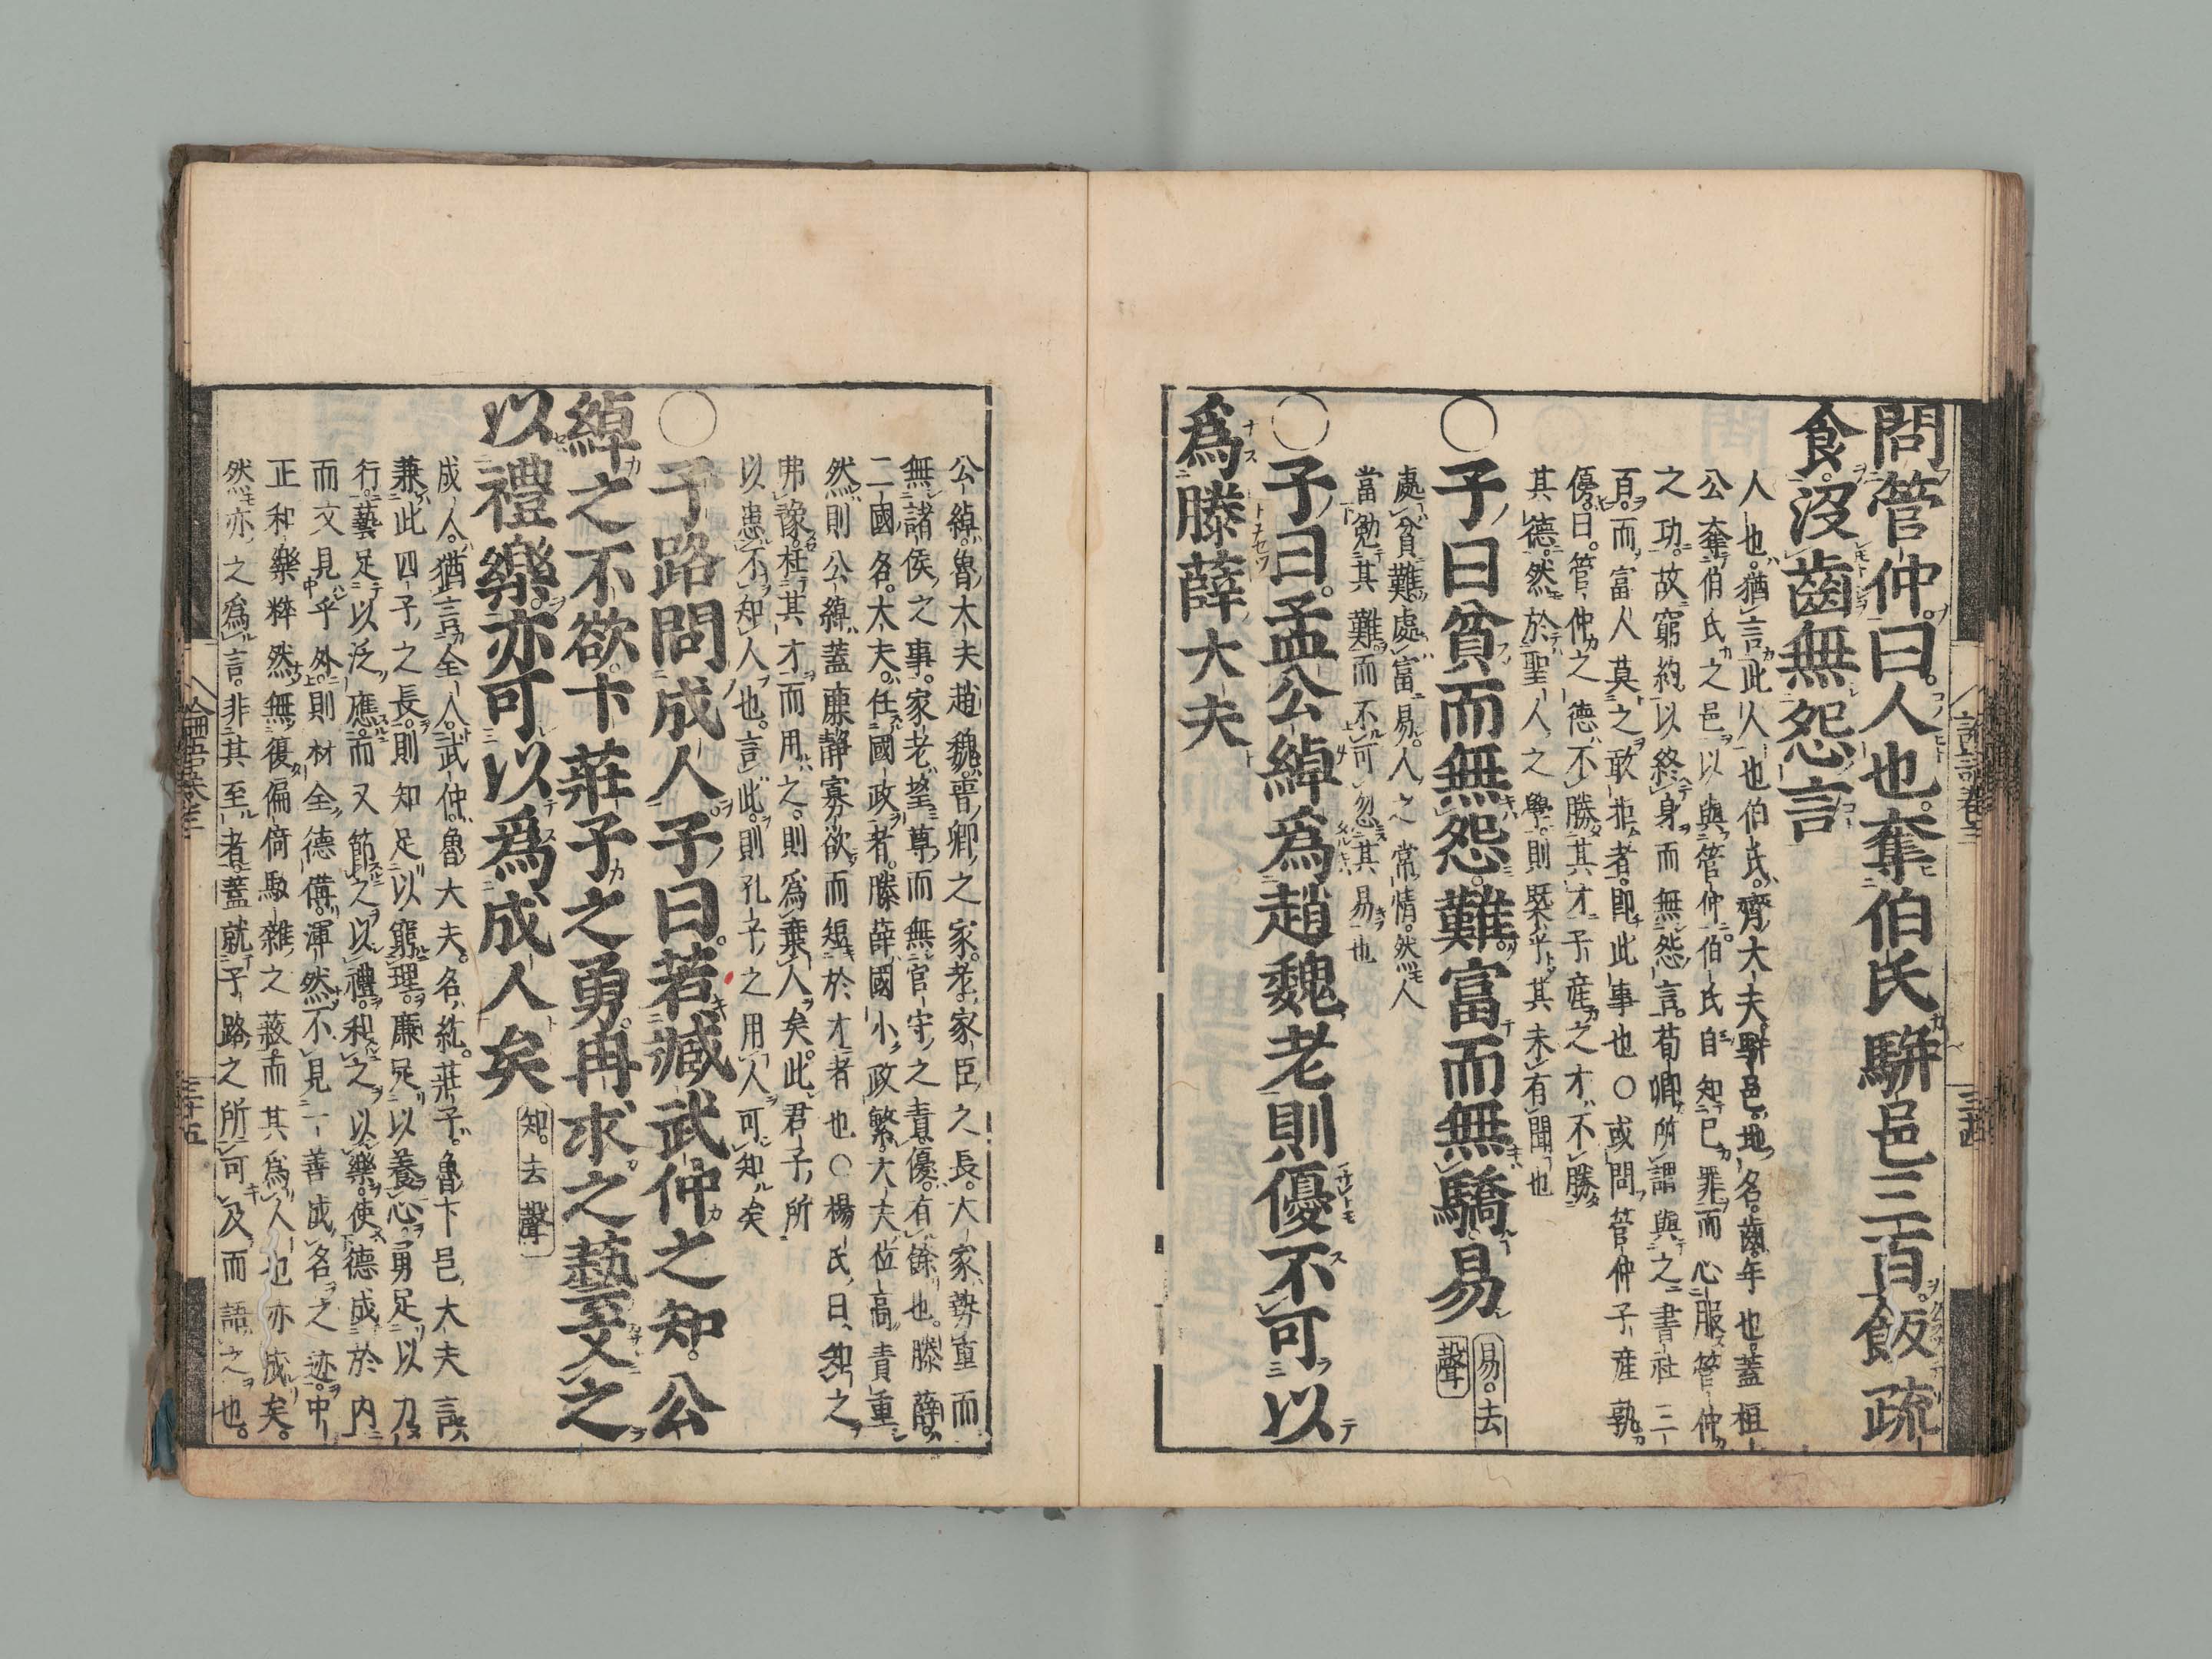 問管仲。曰。人也。奪伯氏駢邑三百。飯疏
食。沒齒無怨言
人也。猶言此人也伯氏。齊大夫。駢邑。地名。齒。年也。蓋桓
公奪伯氏之邑以與管仲。伯氏自知己罪而心服管仲
之功。故窮約以終身而無怨言。荀卿所謂與之書社三
百。而富人莫之敢拒者。即此事也○或問管仲子產孰
優。曰。管仲之德不勝其才子產之才不勝
其德。然於聖人之學。則槩乎其未有聞也
○子曰貧而無怨。難。富而無驕易
易。去
聲
處貧難。處富易。人之常情。然人
當勉其難。而不可忽其易也
○子曰。孟公綽爲趙魏老則優不可以
爲滕薛大夫
公綽。魯大夫趙魏。晉卿之家。老。家臣之長。大家勢重而
無諸侯之事。家老望尊而無官守之責。優。有餘也。滕薛。
二國名。大夫。任國政者。滕薛國小政繁。大夫位高責重
然則公綽蓋廉靜寡欲而短於才者也○楊氏曰。知之
弗豫。枉其才而用之。則爲棄人矣。此君子所
以患不知人也。言此。則孔子之用人可知矣
○子路問成人子曰。若臧武仲之知。公
綽之不欲。卞莊子之勇。冉求之藝。文之
以禮樂。亦可以爲成人矣
知。去聲
成人。猶言全人。武仲。魯大夫。名紇。莊子。魯卞邑大夫言
兼此四子之長。則知足以窮理。廉足以養心。勇足以力
行。藝足以泛應。而又節之以禮。和之以樂。使德成於內
而文見乎外。則材全德備。渾然不見一善成名之迹。中
正和樂粹然無復偏倚駁雜之蔽而其爲人也亦成矣。
然亦之爲言。非其至者。蓋就子路之所可及而語之也。
論語卷三
三十四
論語卷三
三十五